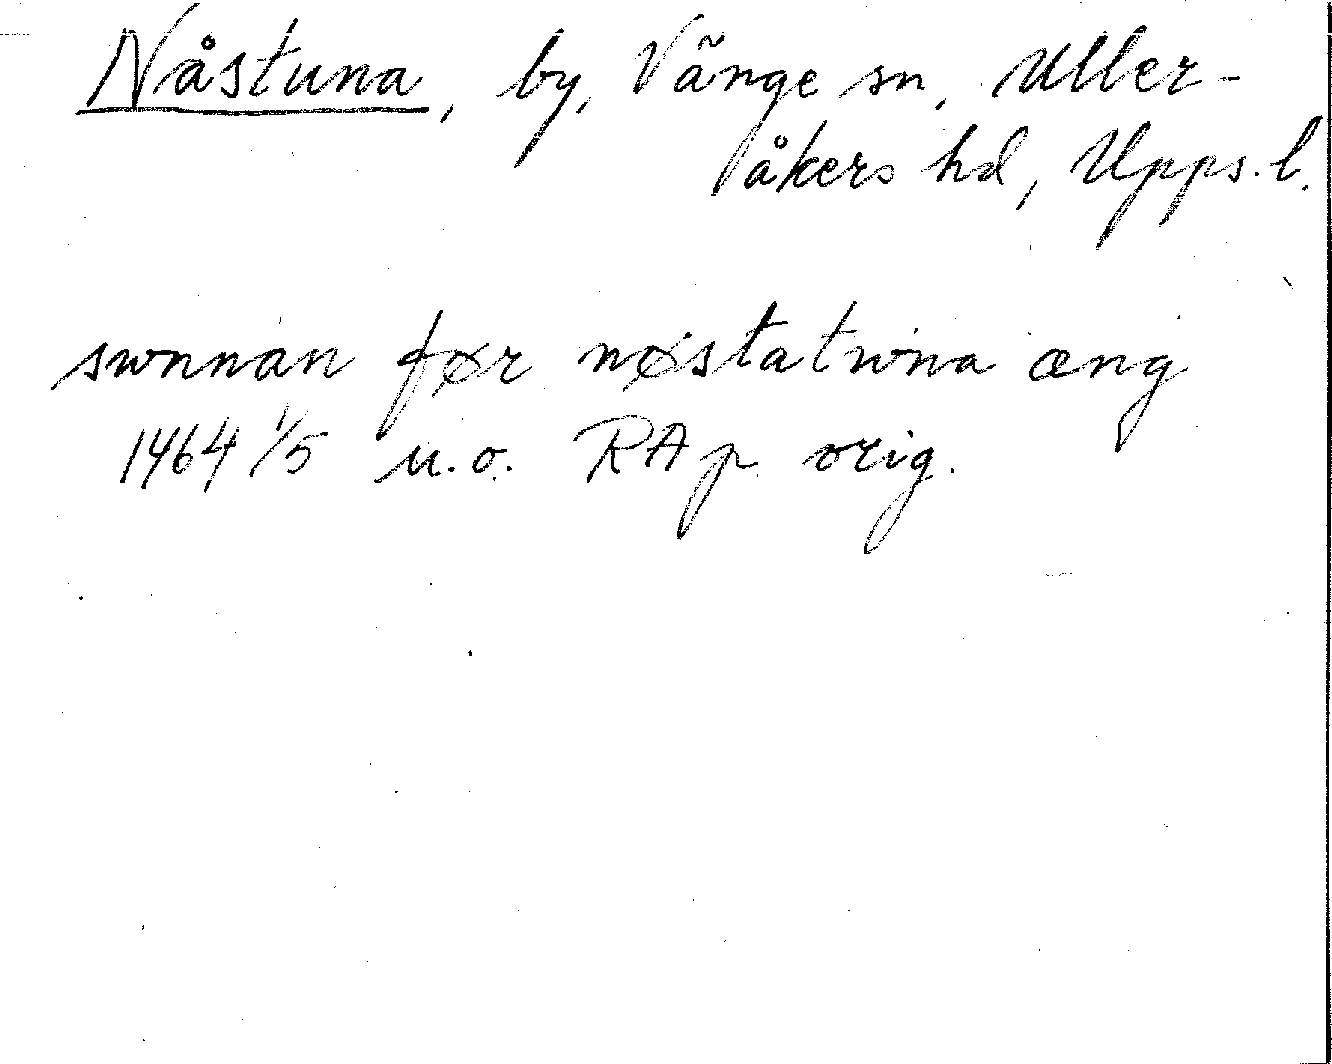 Nåstuna, by, Vänge sn, Uller-
åkers hd, Upps. l.
swnnan før nøstatwna æng
1464 1/5 u.o. RAp orig.